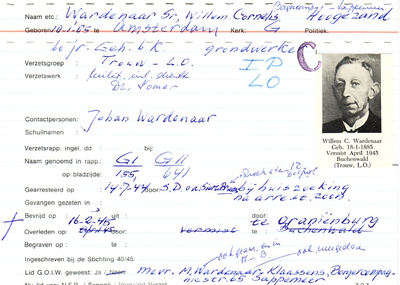 Borgercomp. Sappemeer
Naam etc.: Wardenaar Sr, Willem Cornelis Hoogezand
Geboren: 18-1-85 te Amsterdam Kerk: G Politiek:
60 jr. Geh. b.k. grondwerker
Verzetsgroep : Trouw - L.O. IP
Verzetswerk : LO
Contactpersonen: Johan Wardenaar
Schuilnaam :
Verzetsrap., ingel. dd. : bij:
Naam genoemd in rapp.: GI GII
op bladzijde: 155, 641
Gearresteerd op : 14-7-44 door: S.D. bij huiszoeking
na arrest. zoon.
Gevangen gezeten in :
Bevrijd op : 16-2-45 uit : te Oraniënburg
Overleden op: door: vermist te Buchenwald
Begraven op : te :
Ingeschreven bij de Stichting 40/45:
Lid G.O.I.W. geweest: Ja / Neen: mevr. M. Wardenaar-Klaassens, Borgercompag-
niestr. 65 Sappemeer
C
Willem C. Wardenaar
Geb. 18-1-1885
Vermist April 1945
Buchenwald
(Trouw, L.O.)